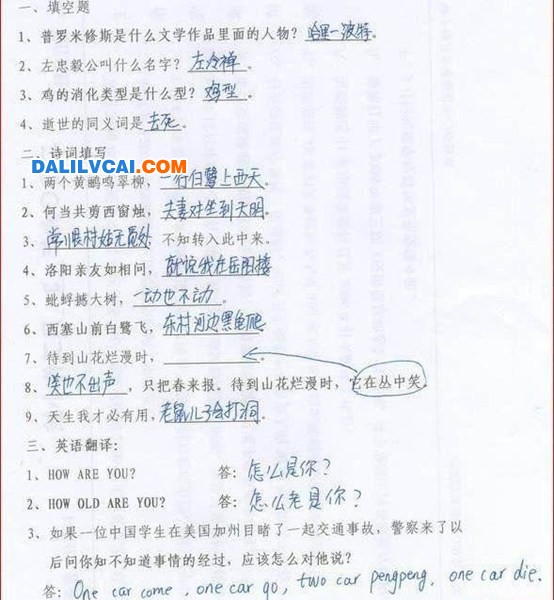 一、填空题
1、普罗米修斯是什么文学作品里面的人物？哈里一波特。
2、左忠毅公叫什么名字？左冷禅。
3、鸡的消化类型是什么型？鸡型。
4、逝世的同义词是去死。
二、诗词填写
DALILVCAI.COM
1、两个黄鹂鸣翠柳，一行白鹭上西天。
2、何当共剪西窗烛，夫妻对坐到天明。
3、常恨村姑无觅处 不知转入此中来。
4、洛阳亲友如相问，就说我在岳阳楼
5、蚍蜉撼大树，一动也不动。
6、西塞山前白鹭飞，东村河边黑龟爬
7、待到山花烂漫时，。
8、笑也不出声，只把春来报。待到山花烂漫时，它在丛中笑。
9、天生我才必有用，老鼠儿子会打洞。
三、英语翻译：
1、HOW ARE YOU? 答：怎么是你？
2、HOW OLD ARE YOU? 答：怎么老是你？
3、如果一位中国学生在美国加州目睹了一起交通事故，警察来了以
后问你知不知道事情的经过，应该怎么对他说？
答：One car come, one car go, two car pengpeng, one car die.